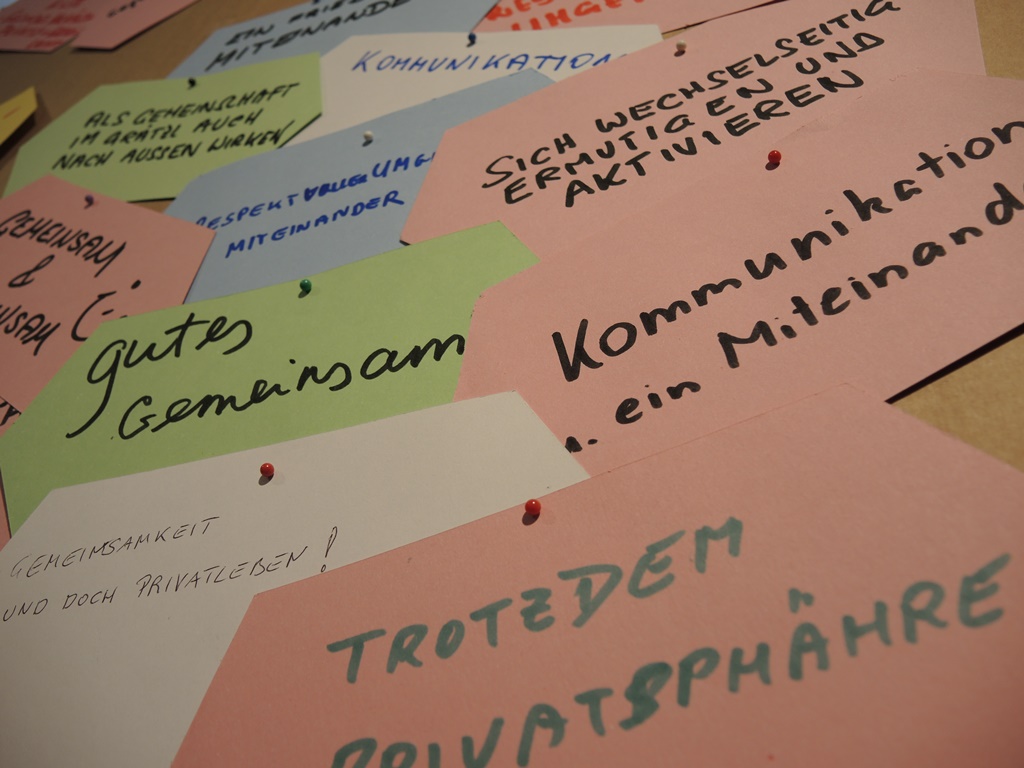 MITEINANDE
KOMMUNIKATION
ALS GEMEINSCHAFT
IM GRÄTZL AUCH
NACH AUSSEN WIRKEN
SICH WECHSELSEITIG
ERMUTIGEN UND
AKTIVIEREN
MITEINANDER
GEMEINSAM
&
Kommunikation
u. ein Miteinand
gutes
Gemeinsam
GEMEINSAMKEIT
UND DOCH PRIVATLEBEN!
TROTZDEM
PRIVATSPHÄHRE